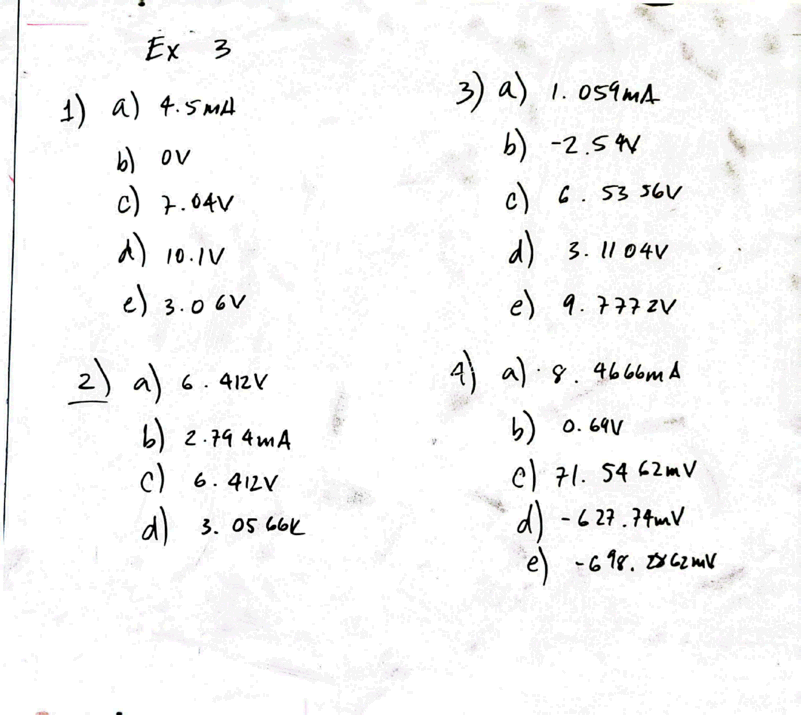 Ex 3
1) a) 4.5mA
b) 0V
c) 7.04V
d) 10.1V
e) 3.06V
2) a) 6.412V
b) 2.794mA
c) 6.412V
d) 3.0566K
3) a) 1.059mA
b) -2.54V
c) 6.5356V
d) 3.1104V
e) 9.7772V
4) a) 8.4666mA
b) 0.69V
c) 71.5462mV
d) -627.74mV
e)